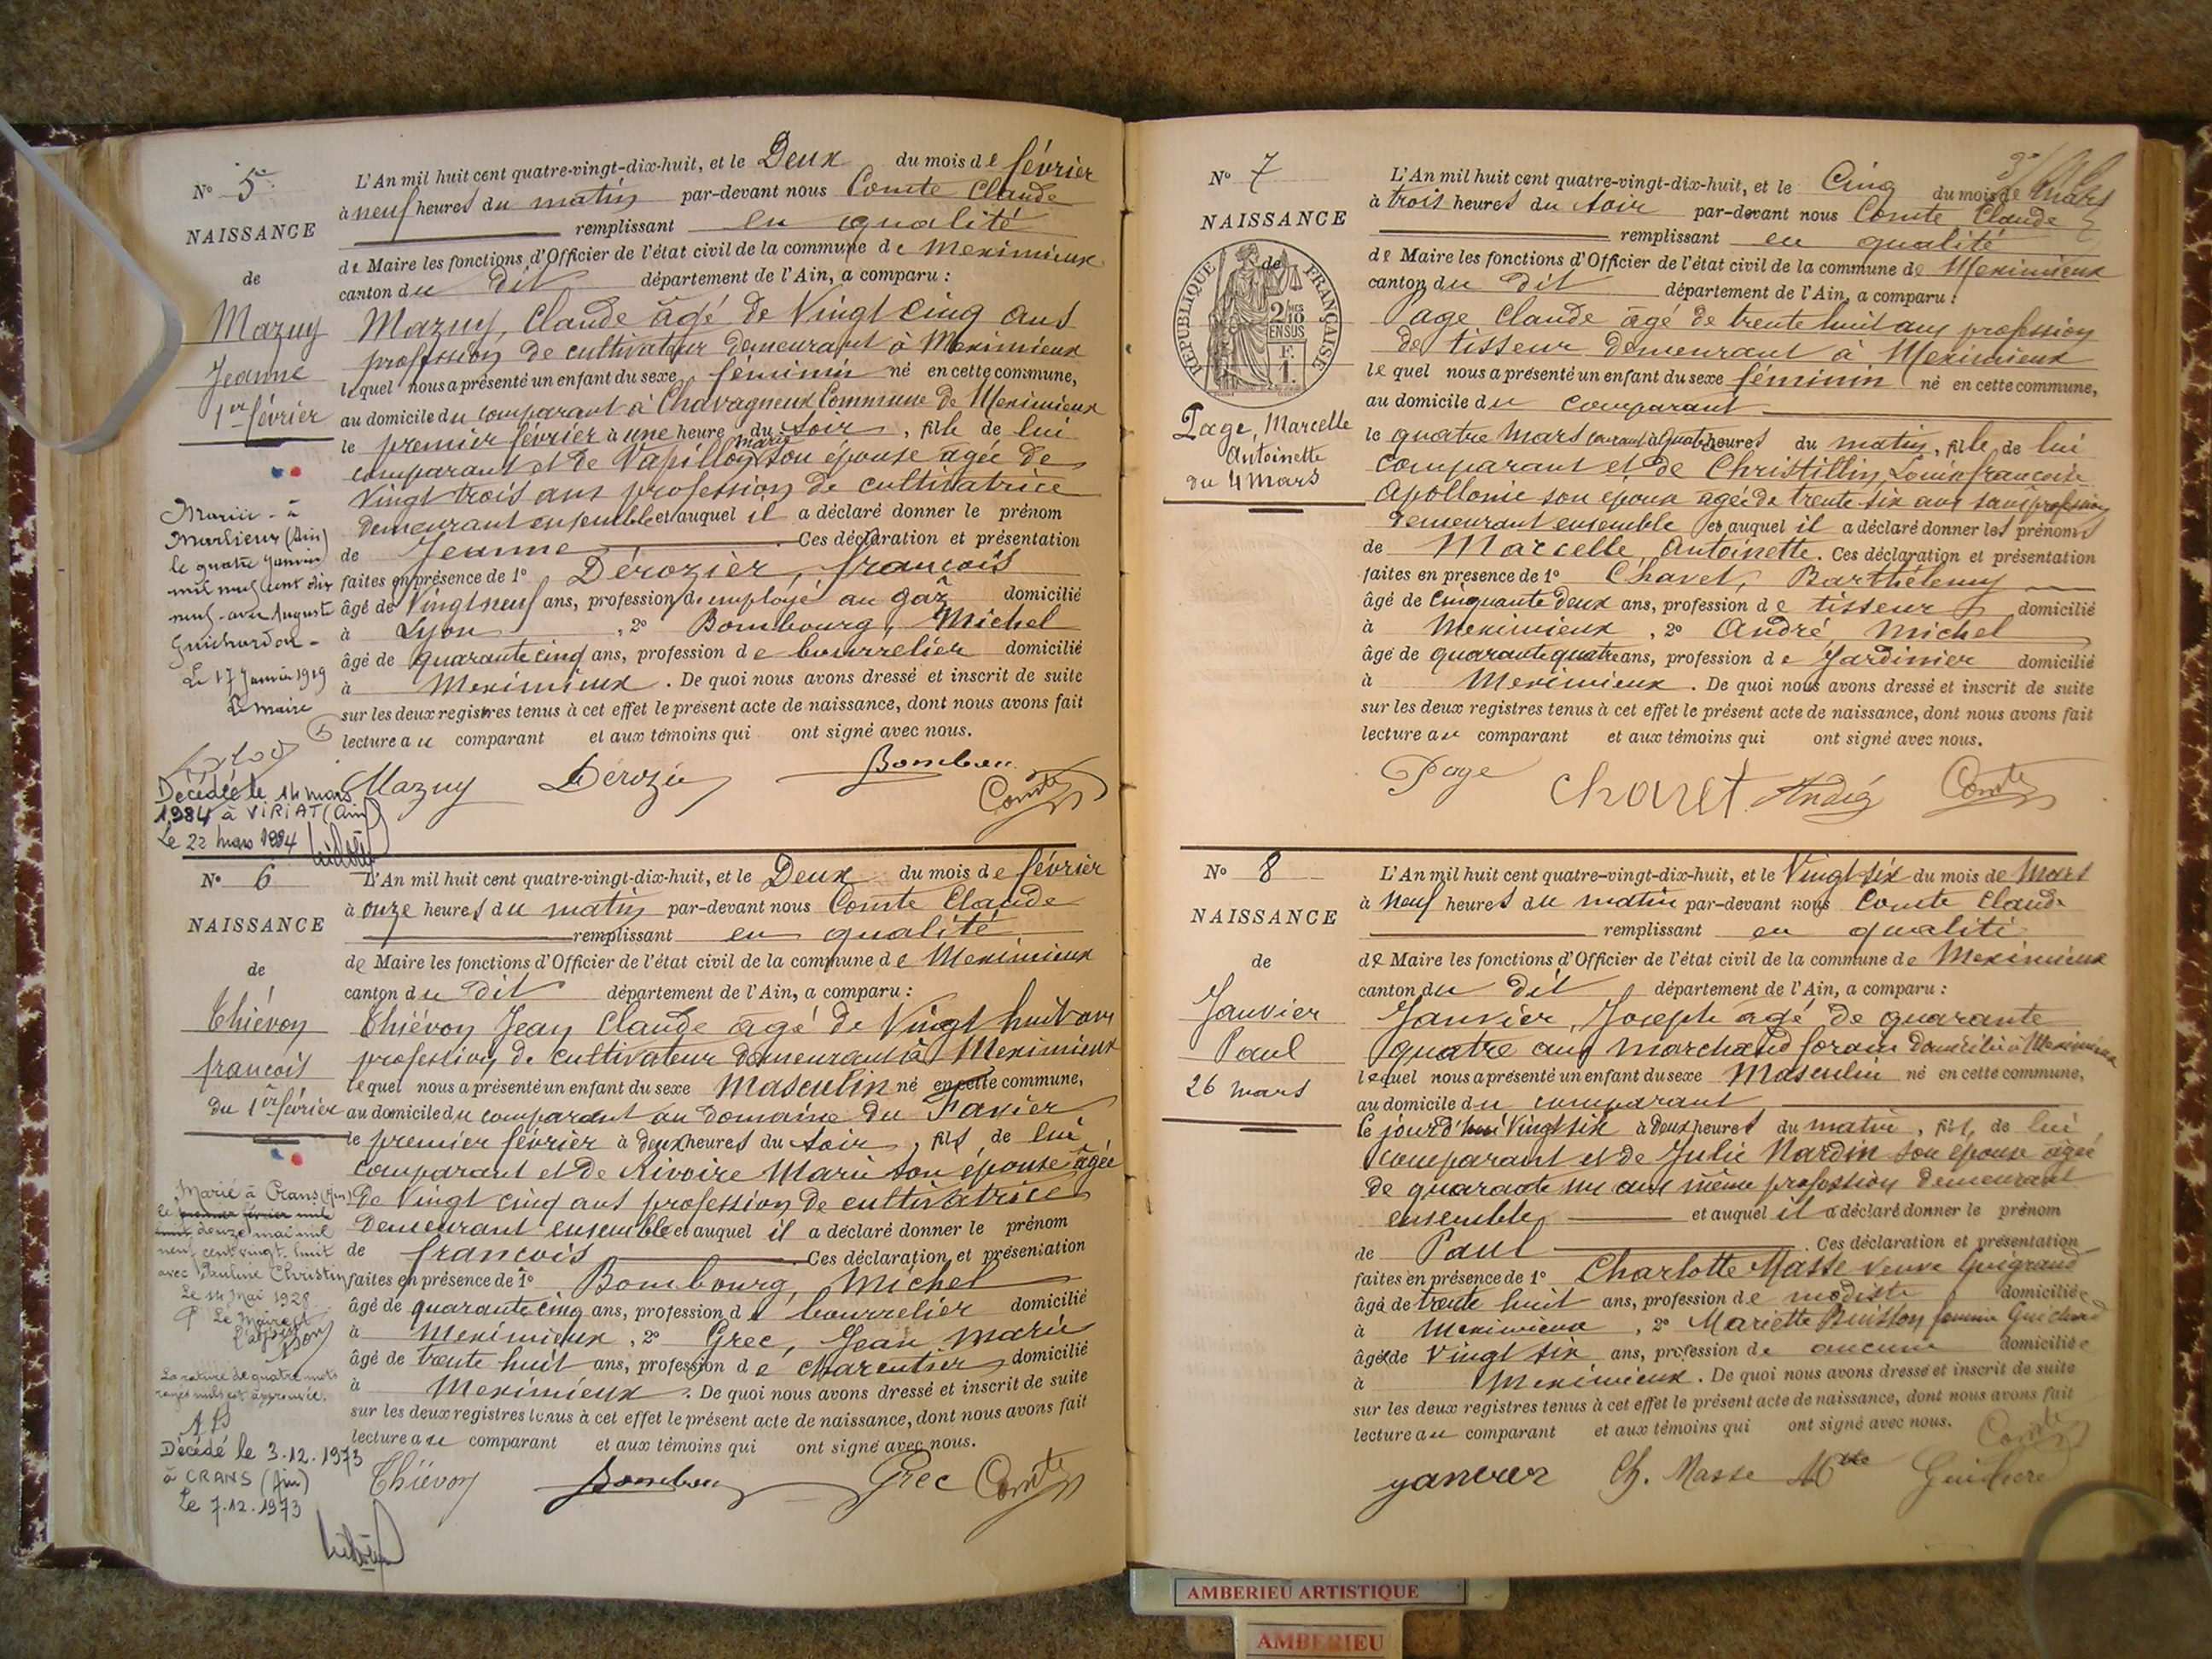 N° 5
NAISSANCE
de
Mazuy
Jeanne
1er février
Mariée à
Marlieux (Ain)
le quatre Janvier
mil neuf cent dix
neuf avec Auguste
Guichardon
Le 17 Janvier 1919
Le Maire
Décédée le 14 mars
1984 à VIRIAT (Ain)
Le 22 mars 1984
L'An mil huit cent quatre-vingt-dix-huit, et le Deux du mois de février
à neuf heures du matin par-devant nous Comte Claude
remplissant en qualité
de Maire les fonctions d'Officier de l'état civil de la commune de Meximieux
canton du dit département de l'Ain, a comparu :
Mazuy, Claude âgé de Vingt cinq ans
profession de cultivateur demeurant à Meximieux
lequel nous a présenté un enfant du sexe féminin né en cette commune,
au domicile du comparant à Chavagneux Commune de Meximieux
le premier février à une heure du soir, fille de lui
comparant et de Vapillon marie son épouse agée de
vingt trois ans profession de cultivatrice
demeurant ensemble et auquel il a déclaré donner le prénom
de Jeanne Ces déclaration et présentation
faites en présence de 1° Dérozier, françois
âgé de Vingt neuf ans, profession d'employé au gaz domicilié
à Lyon, 2° Bombourg, Michel
âgé de quarante cinq ans, profession de bourrelier domicilié
à Meximieux. De quoi nous avons dressé et inscrit de suite
sur les deux registres tenus à cet effet le présent acte de naissance, dont nous avons fait
lecture au comparant et aux témoins qui ont signé avec nous.
Mazuy Dérozier Bombour Comte
N° 6
NAISSANCE
de
Thiévon
françois
du 1er février
Marié à Crans (Ain)
le premier février mil
huit douze mai mil
neuf cent vingt huit
avec Pauline Christin
Le 14 Mai 1928
P Le Maire
l'adjoint
La rature de quatre mots
rayés nuls est approuvée.
Décédé le 3.12.1973
à CRANS (Ain)
Le 7.12.1973
L'An mil huit cent quatre-vingt-dix-huit, et le Deux du mois de février
à onze heures du matin par-devant nous Comte Claude
remplissant en qualité
de Maire les fonctions d'Officier de l'état civil de la commune de Meximieux
canton du dit département de l'Ain, a comparu :
Thiévon Jean Claude âgé de Vingt huit ans
profession de cultivateur demeurant à Meximieux
lequel nous a présenté un enfant du sexe Masculin né en cette commune,
au domicile du comparant au domaine du Favier
le premier février à deux heures du soir, fils de lui
comparant et de Rivoire Marie son épouse âgée
de Vingt cinq ans profession de cultivatrice
demeurant ensemble et auquel il a déclaré donner le prénom
de françois Ces déclaration et présentation
faites en présence de 1° Bombourg, Michel
âgé de quarante cinq ans, profession de bourrelier domicilié
à Meximieux, 2° Grec, Jean Marie
âgé de trente huit ans, profession de charcutier domicilié
à Meximieux. De quoi nous avons dressé et inscrit de suite
sur les deux registres tenus à cet effet le présent acte de naissance, dont nous avons fait
lecture au comparant et aux témoins qui ont signé avec nous.
Thiévon Bombour Grec Comte
N° 7
NAISSANCE
de
REPUBLIQUE FRANÇAISE
2/10 EN SUS
F. 1.
Page, Marcelle
Antoinette
du 4 Mars
L'An mil huit cent quatre-vingt-dix-huit, et le Cinq du mois de Mars
à trois heures du soir par-devant nous Comte Claude
remplissant en qualité
de Maire les fonctions d'Officier de l'état civil de la commune de Meximieux
canton du dit département de l'Ain, a comparu :
Page Claude âgé de trente huit ans profession
de tisseur demeurant à Meximieux
lequel nous a présenté un enfant du sexe féminin né en cette commune,
au domicile du comparant
le quatre Mars courant à quatre heures du matin, fille de lui
comparant et de Christillin, Louise françoise
Apollonie son épouse agée de trente six ans sans profession
demeurant ensemble et auquel il a déclaré donner les prénoms
de Marcelle, Antoinette. Ces déclaration et présentation
faites en présence de 1° Chavet, Barthélemy
âgé de cinquante deux ans, profession de tisseur domicilié
à Meximieux, 2° André, Michel
âgé de quarante quatre ans, profession de Jardinier domicilié
à Meximieux. De quoi nous avons dressé et inscrit de suite
sur les deux registres tenus à cet effet le présent acte de naissance, dont nous avons fait
lecture au comparant et aux témoins qui ont signé avec nous.
Page Chavet André Comte
N° 8
NAISSANCE
de
Janvier
Paul
26 mars
L'An mil huit cent quatre-vingt-dix-huit, et le Vingt six du mois de Mars
à neuf heures du matin par-devant nous Comte Claude
remplissant en qualité
de Maire les fonctions d'Officier de l'état civil de la commune de Meximieux
canton du dit département de l'Ain, a comparu :
Janvier, Joseph agé de quarante
quatre ans marchand forain domicilié à Meximieux
lequel nous a présenté un enfant du sexe Masculin né en cette commune,
au domicile du comparant
le jourd'hui Vingt six à deux heures du matin, fils de lui
comparant et de Julie Nardin son épouse agée
de quarante un ans même profession demeurant
ensemble et auquel il a déclaré donner le prénom
de Paul. Ces déclaration et présentation
faites en présence de 1° Charlotte Masse veuve Guigrand
âgé de trente huit ans, profession de modiste domiciliée
à Meximieux, 2° Mariette Buisson femme Guichard
âgé de Vingt six ans, profession de aucune domiciliée
à Meximieux. De quoi nous avons dressé et inscrit de suite
sur les deux registres tenus à cet effet le présent acte de naissance, dont nous avons fait
lecture au comparant et aux témoins qui ont signé avec nous.
Comte
Janvier Ch. Masse
AMBERIEU ARTISTIQUE
AMBERIEU